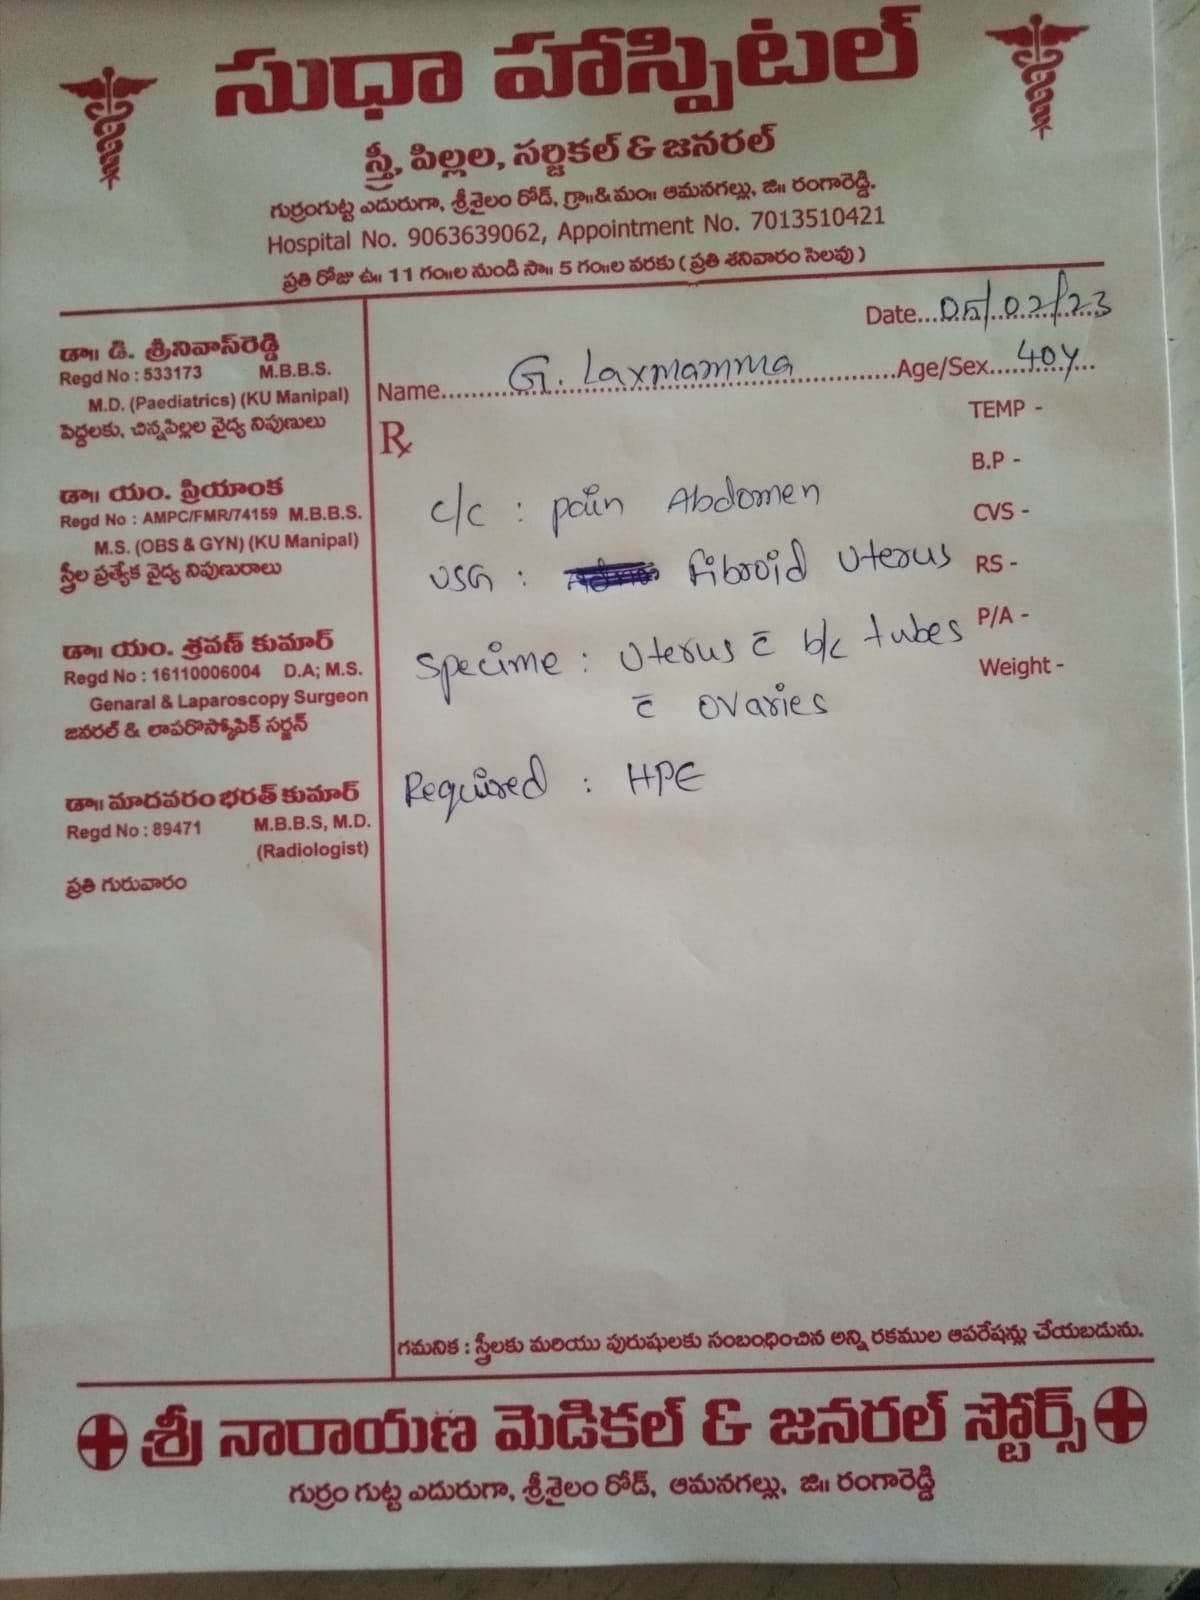 సుధా హాస్పిటల్
స్త్రీ, పిల్లల, సర్జికల్ & జనరల్
గుర్రంగుట్ట ఎదురుగా, శ్రీశైలం రోడ్, గ్రా॥&మం॥ ఆమనగల్లు, జి॥ రంగారెడ్డి.
Hospital No. 9063639062, Appointment No. 7013510421
ప్రతి రోజు ఉ॥ 11 గం॥ల నుండి సా॥ 5 గం॥ల వరకు ( ప్రతి శనివారం సెలవు )
Date...05/02/23
Name....G. Laxmamma....Age/Sex...40y...
డా॥ డి. శ్రీనివాస్‌రెడ్డి
Regd No : 533173 M.B.B.S.
M.D. (Paediatrics) (KU Manipal)
పెద్దలకు, చిన్నపిల్లల వైద్య నిపుణులు
డా॥ యం. ప్రియాంక
Regd No : AMPC/FMR/74159 M.B.B.S.
M.S. (OBS & GYN) (KU Manipal)
స్త్రీల ప్రత్యేక వైద్య నిపుణురాలు
డా॥ యం. శ్రవణ్ కుమార్
Regd No : 16110006004 D.A; M.S.
Genaral & Laparoscopy Surgeon
జనరల్ & లాపరొస్కోపిక్ సర్జన్
డా॥ మాదవరం భరత్ కుమార్
Regd No : 89471 M.B.B.S, M.D.
(Radiologist)
ప్రతి గురువారం
Rx
C/C : pain Abdomen
USG : Fibroid Uterus
Specime : Uterus c̄ b/c tubes
c̄ ovaries
Required : HPE
TEMP -
B.P -
CVS -
RS -
P/A -
Weight -
గమనిక : స్త్రీలకు మరియు పురుషులకు సంబంధించిన అన్ని రకముల ఆపరేషన్లు చేయబడును.
శ్రీ నారాయణ మెడికల్ & జనరల్ స్టోర్స్
గుర్రం గుట్ట ఎదురుగా, శ్రీశైలం రోడ్, ఆమనగల్లు, జి॥ రంగారెడ్డి